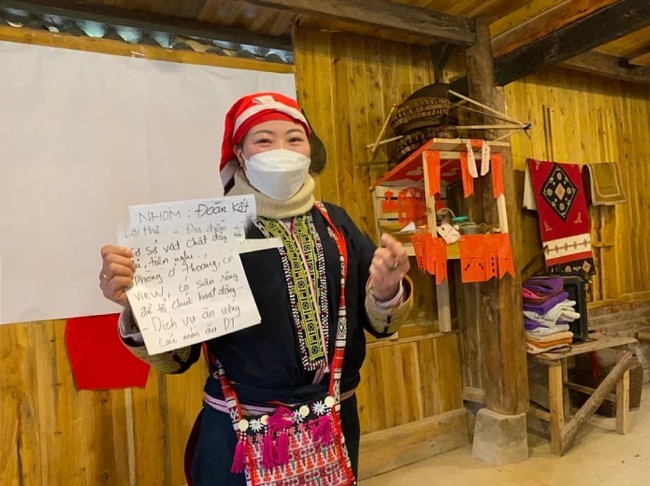 NHÓM : Đoàn Kết
Lợi thế : - Địa điểm
Cơ sở vật chất đầy
đủ tiện nghi
Phòng ở thoáng, có
View, có sân rộng
để tổ chức hoạt động
- Dịch vụ ăn uống
Các món ăn DT